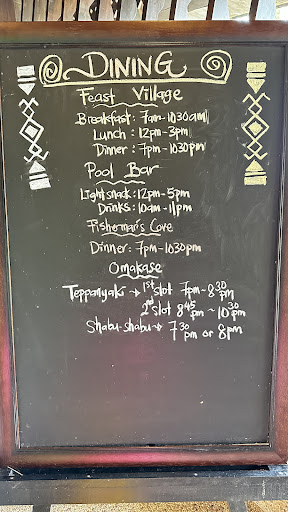 DINING
Feast Village
Breakfast: 7am-1030am
Lunch: 12pm-3pm
Dinner: 7pm-1030pm
Pool Bar
Light snack: 12pm-5pm
Drinks: 10am-11pm
Fisherman's Cove
Dinner: 7pm-1030pm
Omakase
Teppanyaki → 1st slot 7pm~8 30 pm
2nd slot 8 45 pm ~ 10 30 pm
Shabu-shabu → 7 30 pm or 8pm